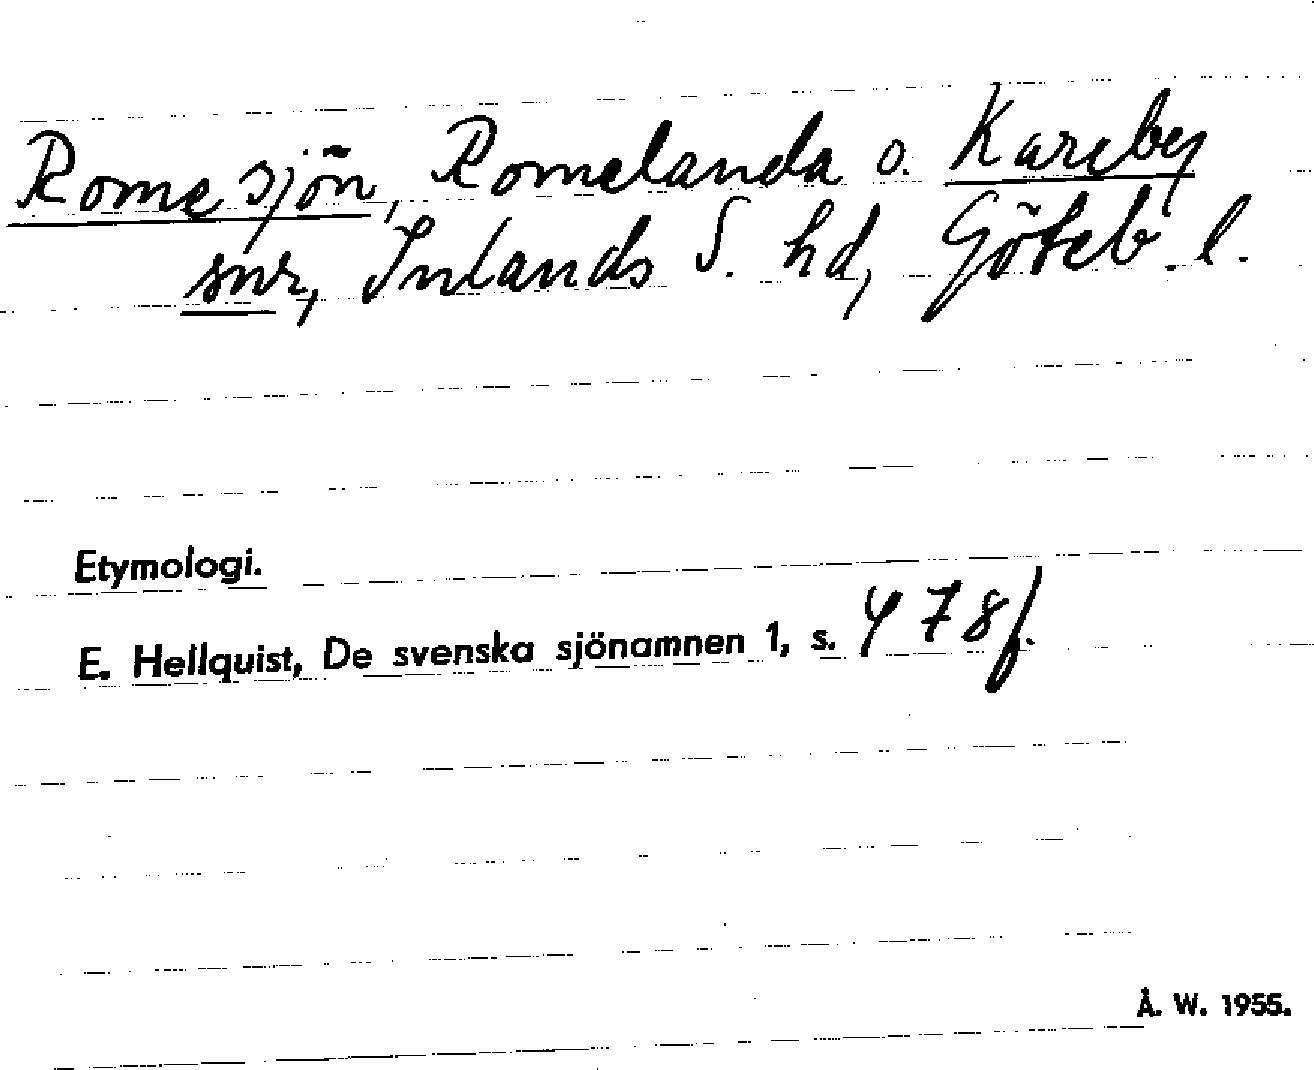 Romesjön, Romelanda o. Kareby
snr, Inlands S. hd, Göteb. l.
Etymologi.
E. Hellquist, De svenska sjönamnen 1, s. 478f.
Å. W. 1955.